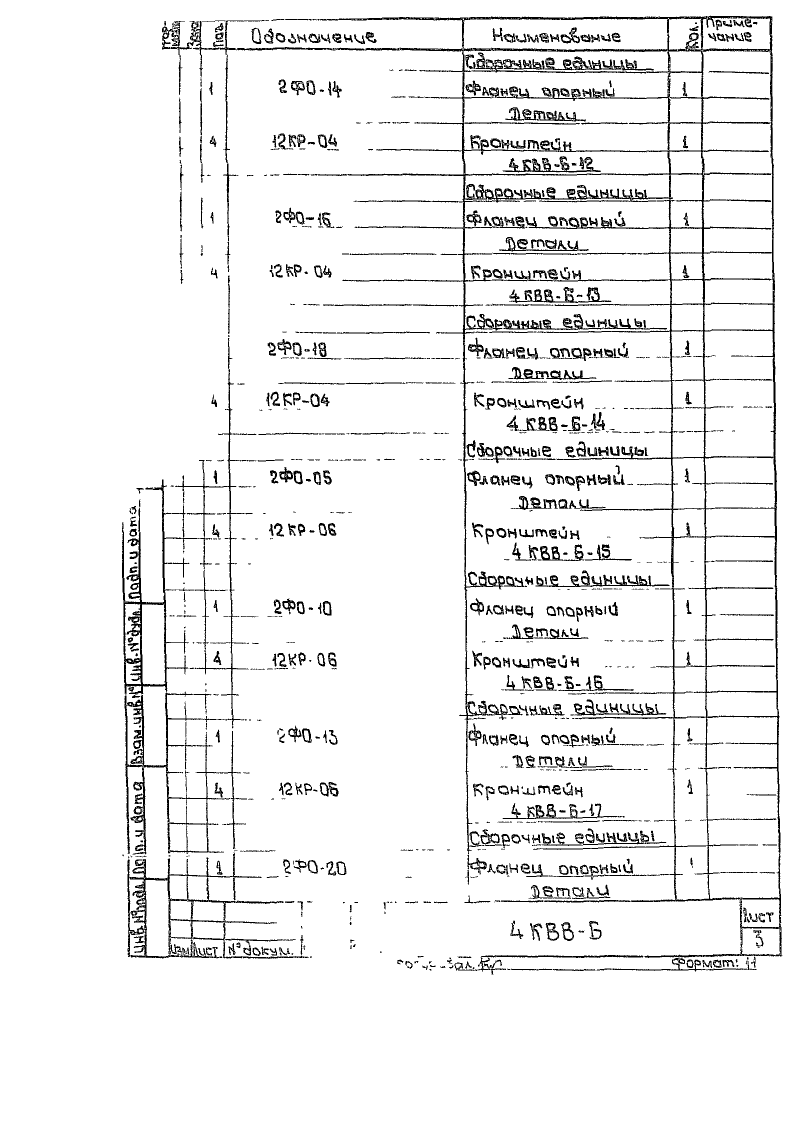 Фор-мат Зона Поз. Обозначение Наименование Кол. Приме-чание
Сборочные единицы
1 2ФО-14 Фланец опорный 1
Детали
4 12КР-04 Кронштейн 1
4КВВ-Б-12
Сборочные единицы
1 2ФО-16 Фланец опорный 1
Детали
4 12КР-04 Кронштейн 1
4КВВ-Б-13
Сборочные единицы
2ФО-18 Фланец опорный 1
Детали
4 12КР-04 Кронштейн 1
4КВВ-Б-14
Сборочные единицы
1 2ФО-05 Фланец опорный 1
Детали
4 12КР-06 Кронштейн 1
4КВВ-Б-15
Сборочные единицы
1 2ФО-10 Фланец опорный 1
Детали
4 12КР-06 Кронштейн 1
4КВВ-Б-16
Сборочные единицы
1 2ФО-13 Фланец опорный 1
Детали
4 12КР-06 Кронштейн 1
4КВВ-Б-17
Сборочные единицы
1 2ФО-20 Фланец опорный 1
Детали
Подп. и дата
Инв. № дубл.
Взам. инв. №
Подп. и дата
Инв. № подл.
Изм Лист № докум.
4КВВ-Б
Лист
3
Формат: 11